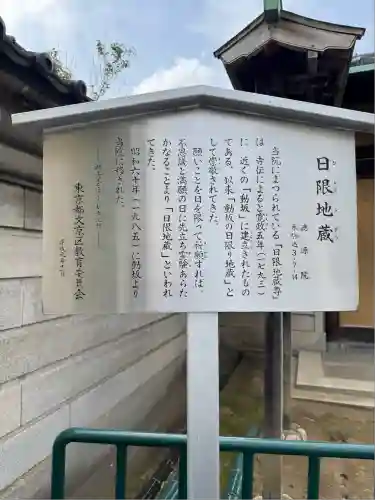 日限地蔵
ひ ぎり じ ぞう
徳源院
本駒込3-7-14
当院にまつられている「日限地蔵尊」
は寺伝によると寛政五年(一七九三)
に近くの「動坂」に建立されたもの
である。以来「動坂の日限り地蔵」と
して崇敬されてきた。
願いごとを日を限って祈願すれば、
不思議と満願の日に先立ち霊験あらた
かなることより「日限地蔵」といわれ
てきた。
昭和六十年(一九八五)に動坂より
当院に移された。
東京都文京区教育委員会